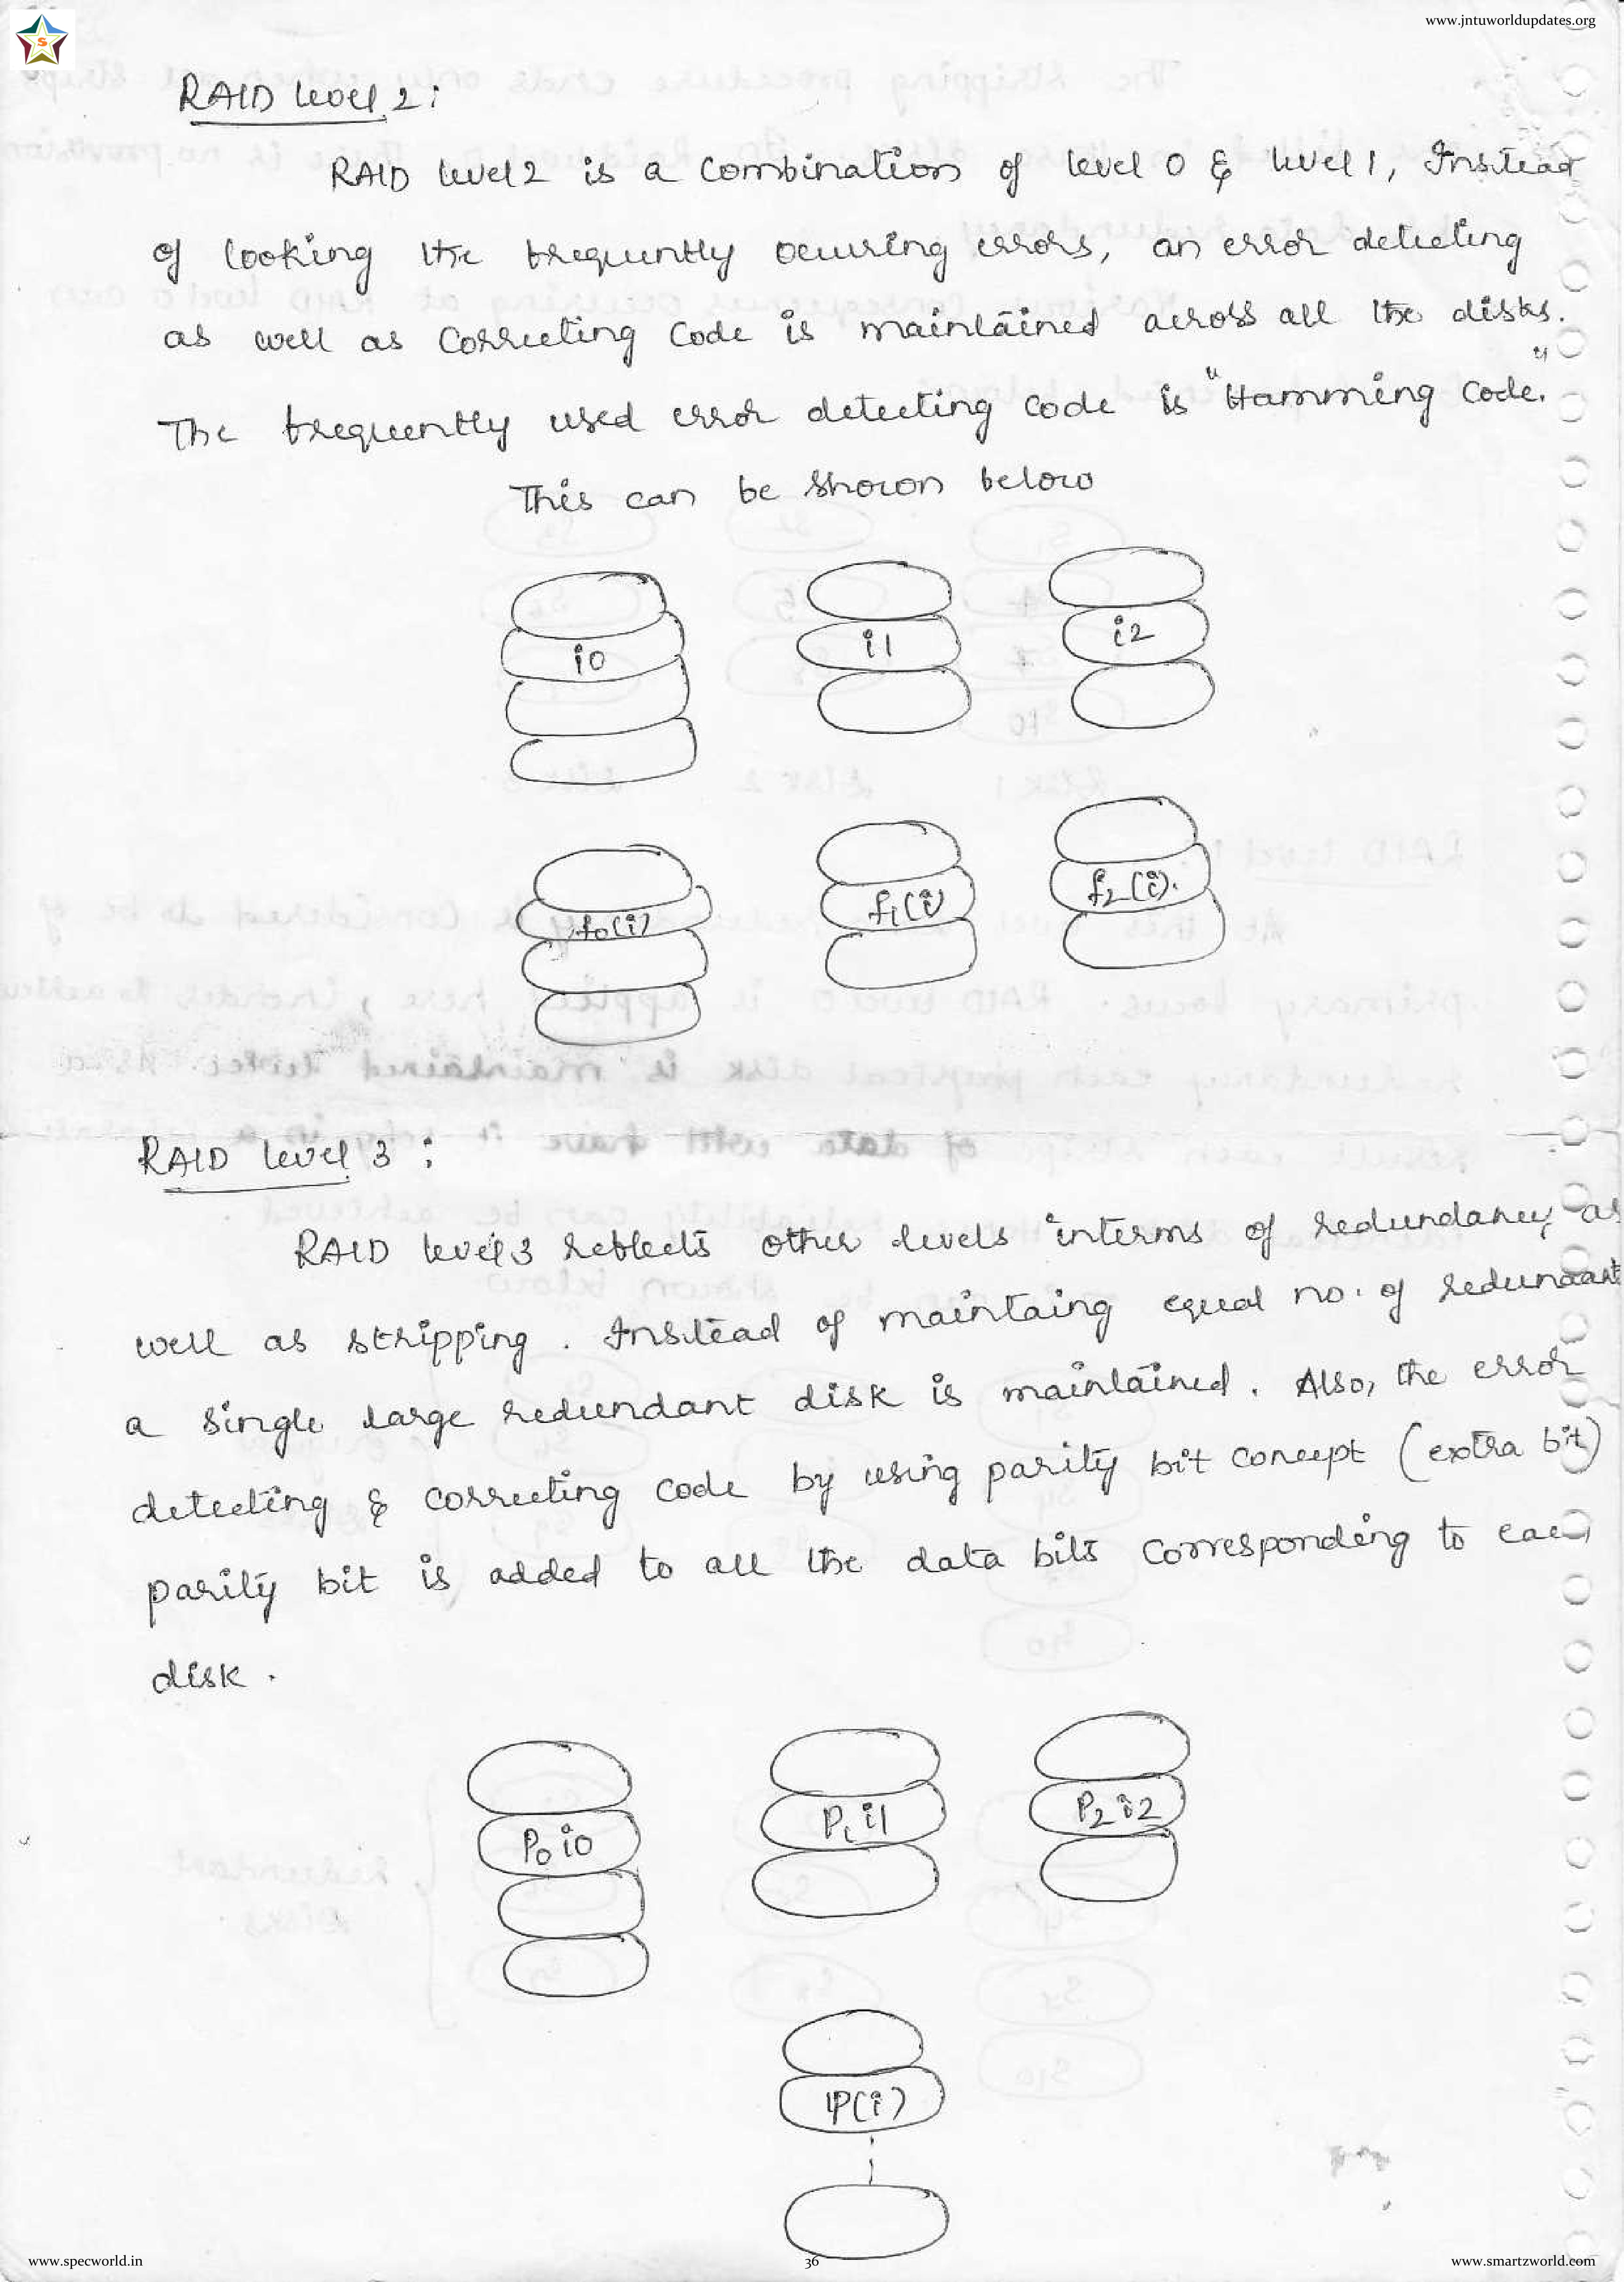 www.jntuworldupdates.org
S
RAID level 2:
RAID level 2 is a combination of level 0 & level 1, Instead
of looking the frequently occuring errors, an error detecting
as well as correcting code is maintained across all the disks.
The frequently used error detecting code is "Hamming code."
This can be shown below
i0 i1 i2
f0(i) f1(i) f2(i).
RAID level 3:
RAID level 3 reflects other levels interms of redundancy as
well as stripping. Instead of maintaing equal no. of redundant
a single large redundant disk is maintained. Also, the error
detecting & correcting code by using parity bit concept (extra bit)
parity bit is added to all the data bits corresponding to each
disk.
P0 i0 P1 i1 P2 i2
P(i)
www.specworld.in 36 www.smartzworld.com